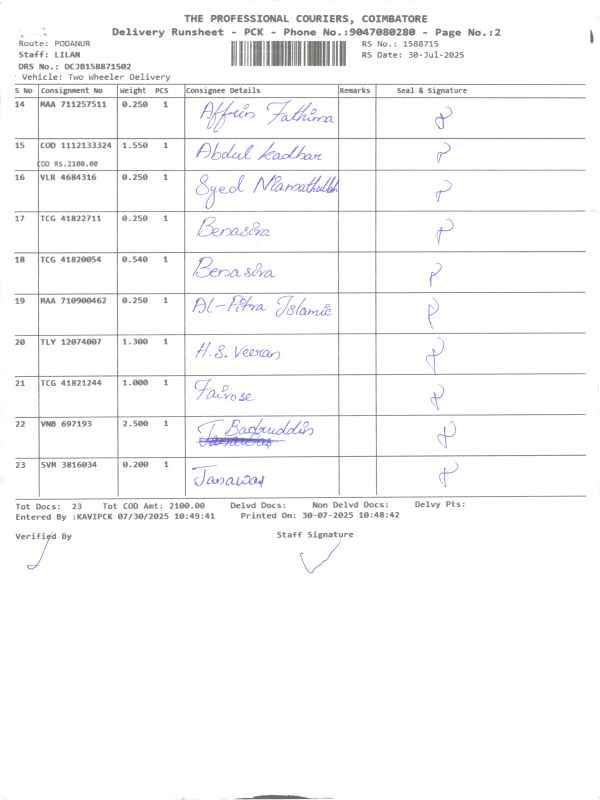 THE PROFESSIONAL COURIERS, COIMBATORE
Delivery Runsheet - PCK - Phone No.:9047080280 - Page No.:2
Route: PODANUR RS No.: 1588715
Staff: LILAN RS Date: 30-Jul-2025
DRS No.: DCJB158871502
Vehicle: Two Wheeler Delivery
S No Consignment No Weight PCS Consignee Details Remarks Seal & Signature
14 MAA 711257511 0.250 1 Affrin Fathima
15 COD 1112133324 1.550 1 Abdul kadhar
COD Rs.2100.00
16 VLR 4684316 0.250 1 Syed Niamathullah
17 TCG 41822711 0.250 1 Benasira
18 TCG 41820054 0.540 1 Benasira
19 MAA 710900462 0.250 1 Al-Fitra Islamic
20 TLY 12074007 1.300 1 H.S. Veeran
21 TCG 41821244 1.000 1 Fairose
22 VNB 697193 2.500 1 T. Badruddin
23 SVM 3816034 0.200 1 Janawas
Tot Docs: 23 Tot COD Amt: 2100.00 Delvd Docs: Non Delvd Docs: Delvy Pts:
Entered By :KAVIPCK 07/30/2025 10:49:41 Printed On: 30-07-2025 10:48:42
Verified By Staff Signature